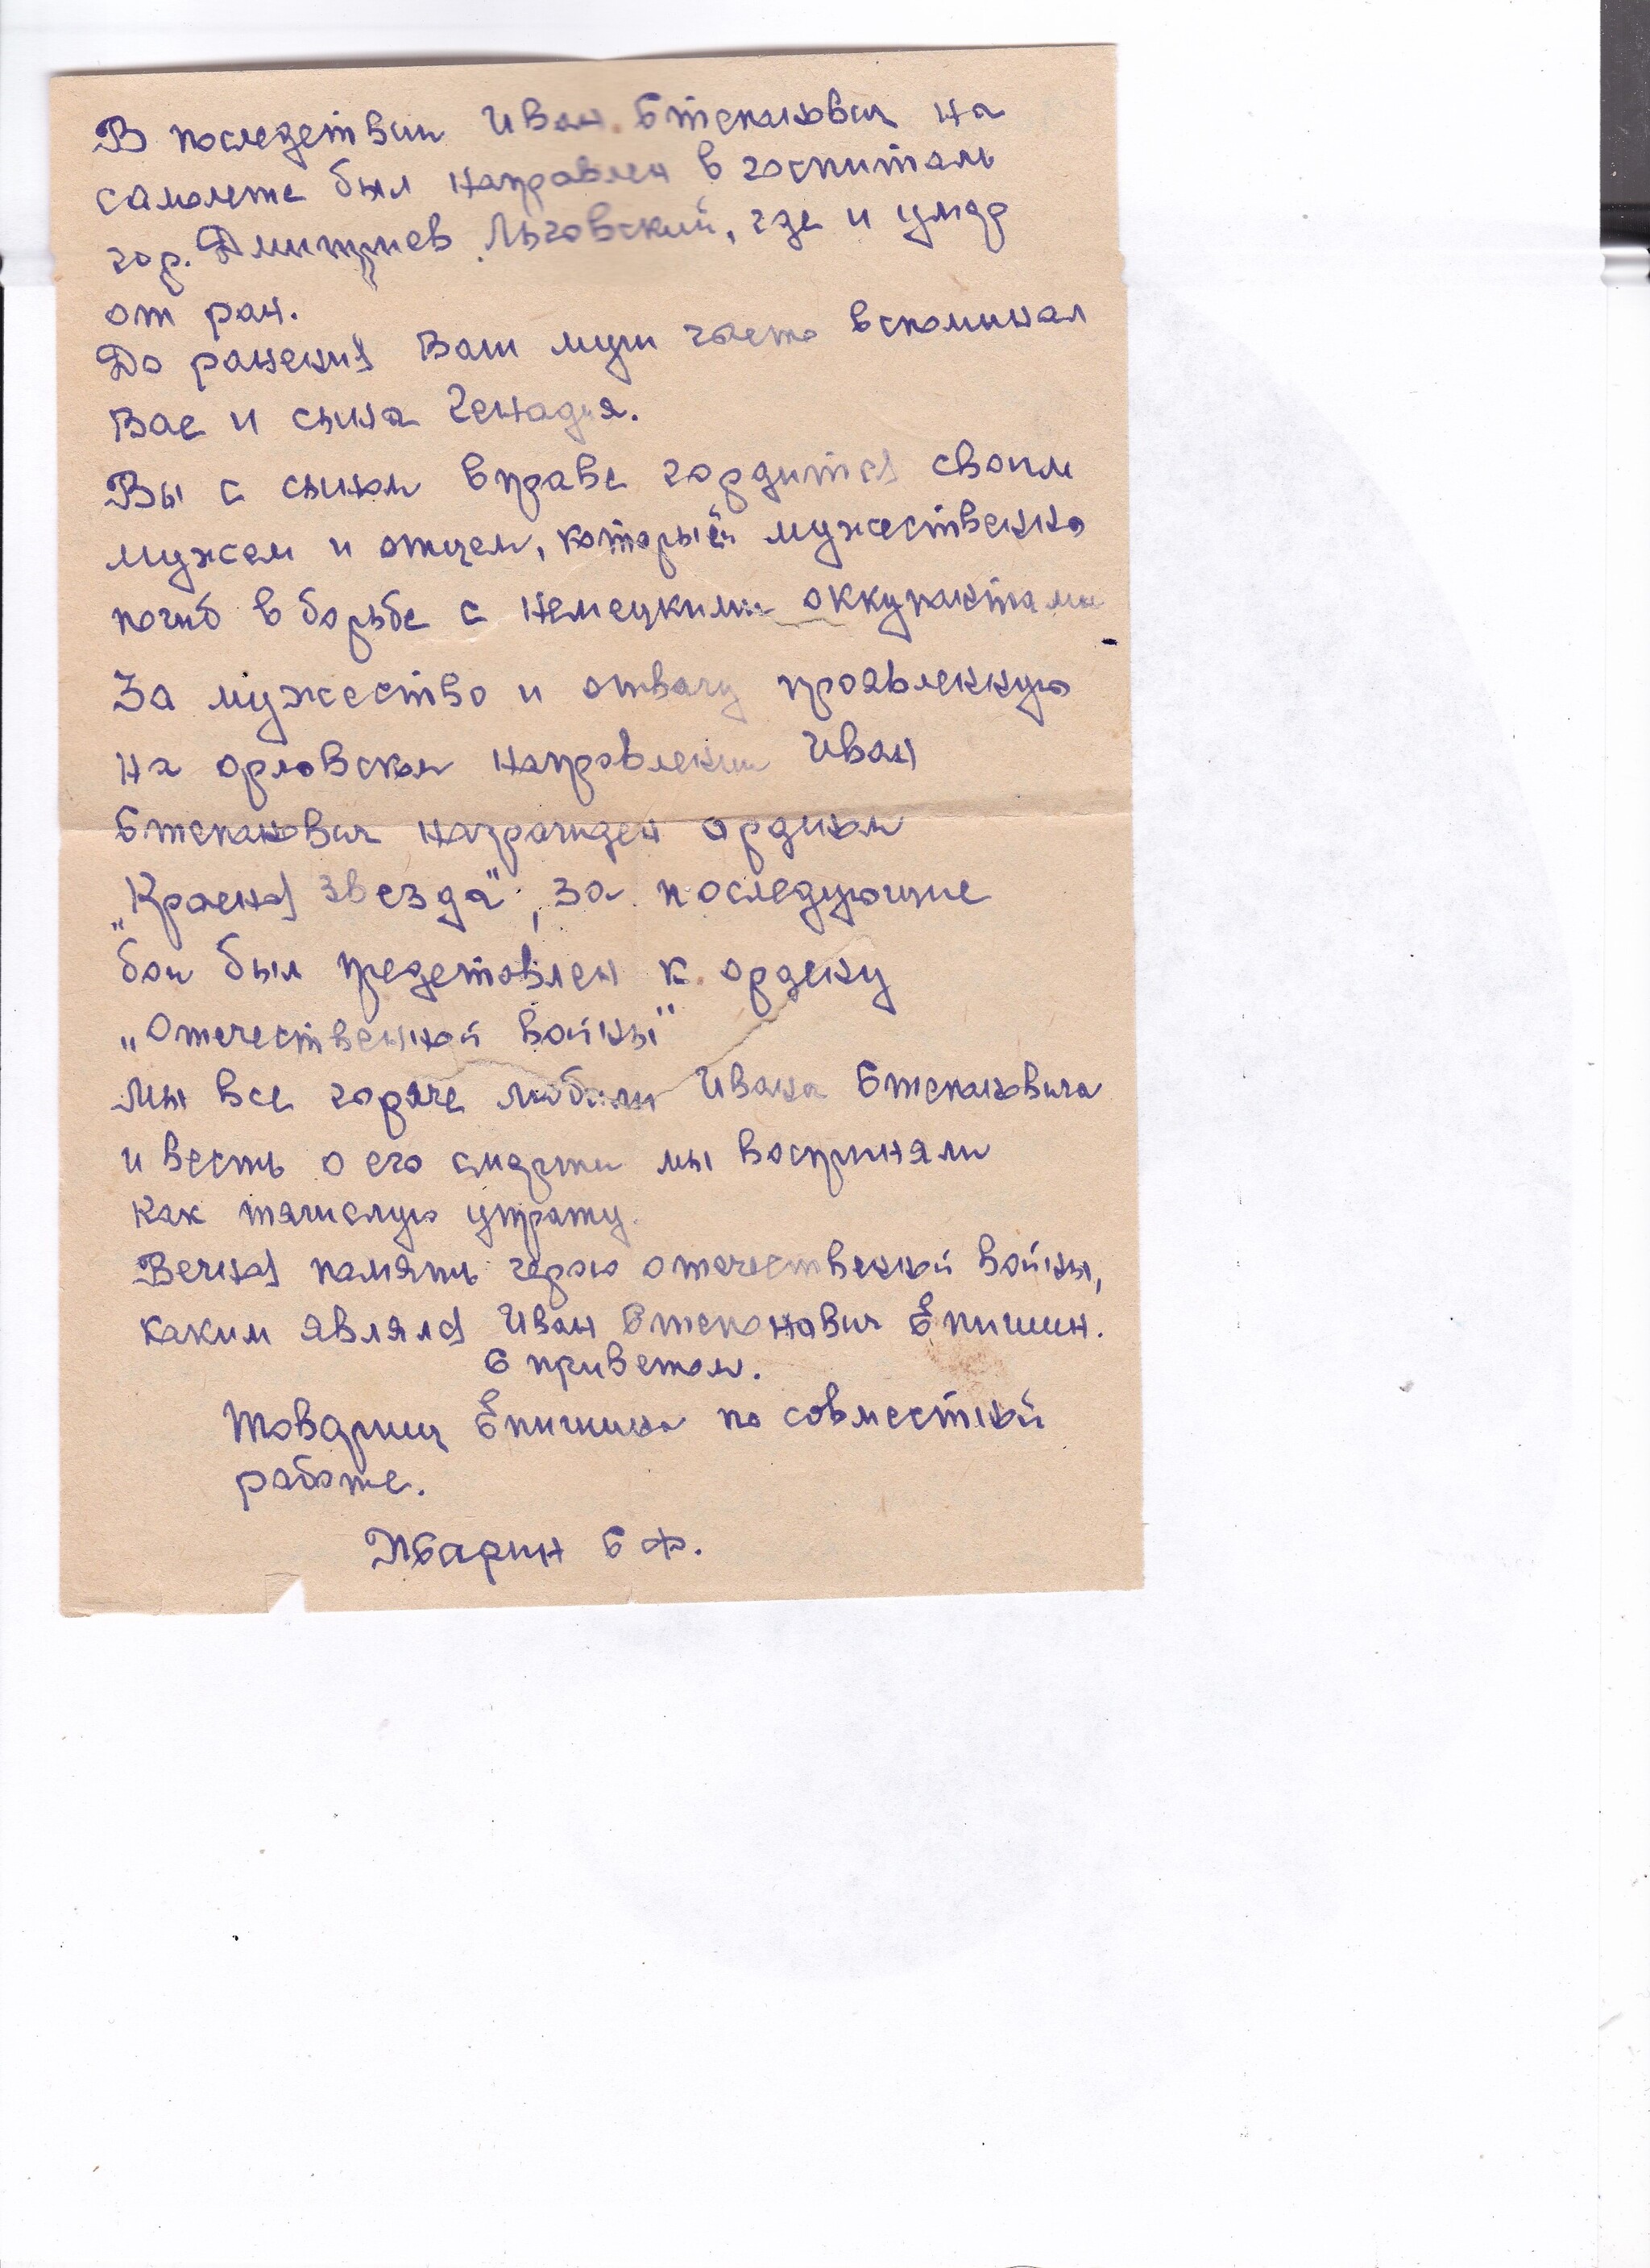 В последствии Иван Степанович на
самолете был направлен в госпиталь
гор. Дмитриев Льговский, где и умер
от ран.
До ранения Ваш муж часто вспоминал
Вас и сына Генадия.
Вы с сыном вправе гордится своим
мужем и отцем, который мужественно
погиб в борьбе с немецкими оккупантами
За мужество и отвагу проявленную
на орловском направлении Иван
Степанович награжден ордином
„Красная звезда", за последующие
бои был представлен к ордену
„Отечественной войны"
Мы все горяче любили Ивана Степановича
и весть о его смерти мы восприняли
как тяжелую утрату.
Вечная память герою отечественной войны,
каким являлся Иван Степанович Епишин.
С приветом.
Товарищ Епишина по совместной
работе.
С Ф.